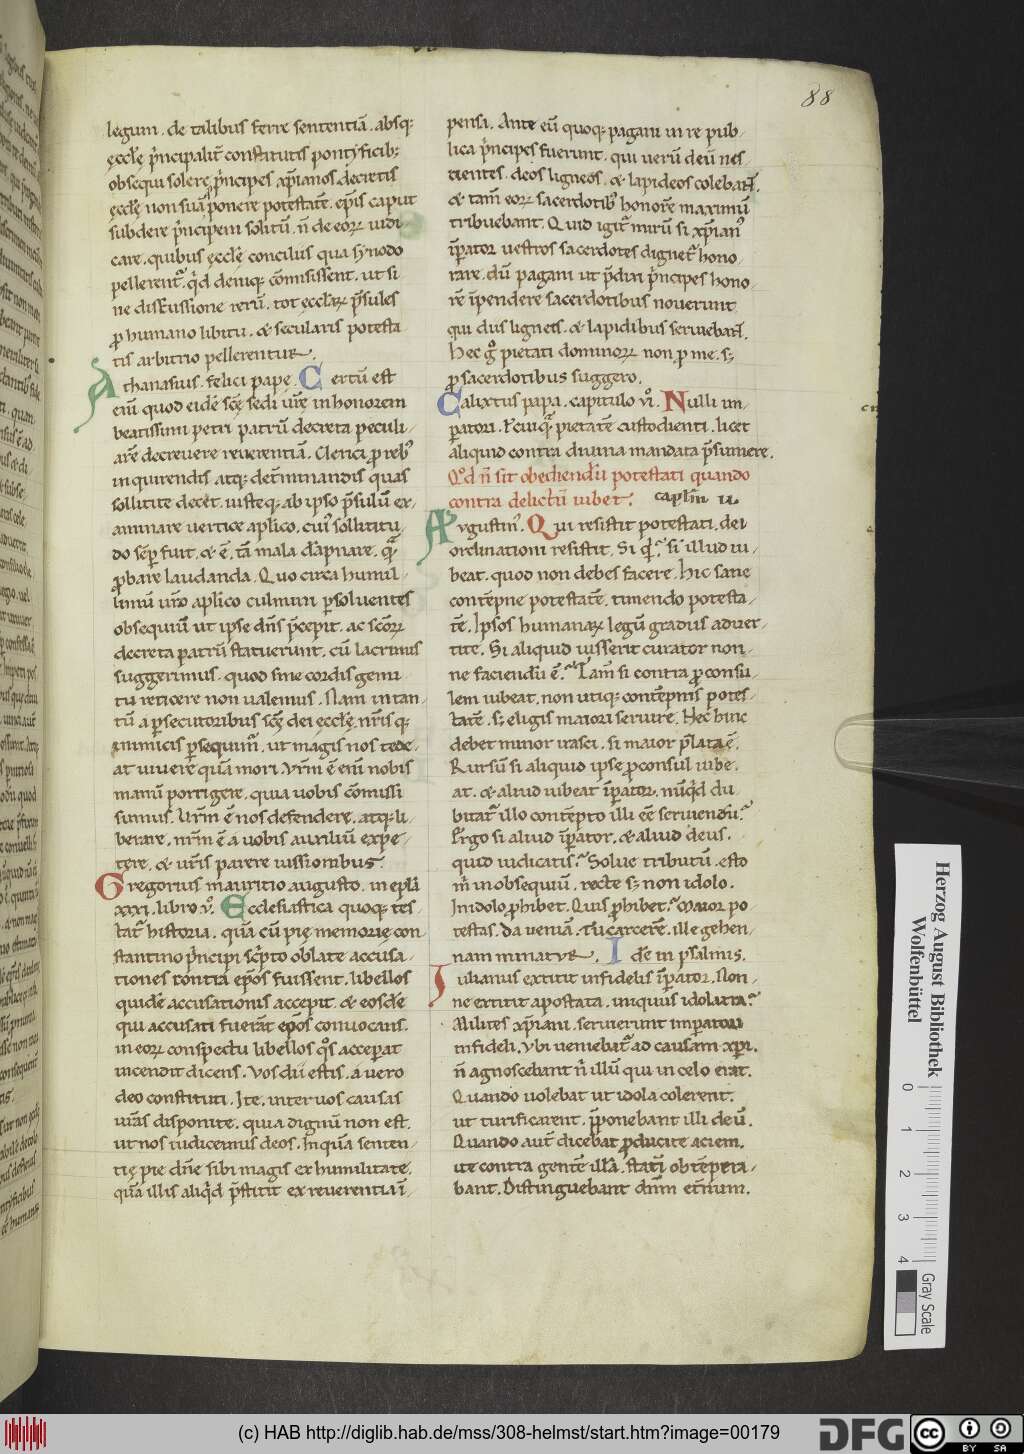 88
legum. de talibus ferre sententiā. absq;
ęcclę p̄ncipalit̄ constitutis pontificib;
obsequi solere p̄ncipes xp̄ianos decretis
ęcclę non suā p̄ponere potestatē. ep̄is caput
subdere p̄ncipem solitū. n̄ de eorꝝ iudi
care. quibus ęcclę conciliis qua synodo
pellerent᷑. qͥd deniq; cōmisissent. ut si
ne discussione rerū. tot ęcclarꝝ p̄sules
ꝓ humano libitu. & secularis potesta
tis arbitrio pellerentur.
Athanasius. felici pape. Certū est
eni᷑ quod eidē scę sedi ur̄e in honorem
beatissimi petri patrū decreta peculi
arē decreuere reuerentiā. Clerici ꝓ reb᷒
inquirendis atq; det̄minandis quas
sollicite decet. iusteq; ab ipso p̄sulum ex
aminare uertice ap̄lico. cui᷒ sollicitu
do sēp fuit. & ē. tā mala dāpnare. qͣ
ꝓbare laudanda. Quo circa humil
limū uro ap̄lico culmini ꝑsoluentes
obsequiū ut ipse dn̄s p̄cepit. ac scōrꝝ
decreta patrū statuerunt. cū lacrimis
suggerimus. quod sine cordis gemi
tu reticere non ualemus. Nam in tan
tū a ꝑsecutoribus scę dei ęcclę. nr̄is q;
inimicis ꝑsequim᷑. ut magis nos tede
at uiuere quā mori. Vrm̄ ē eni᷑ nobis
manū porrigere. quia uobis cōmissi
sumus. Vrm̄ ē nos defendere. atq; li
berare. nrm̄ ē a uobis auxiliū expe
tere. & ur̄is parere iussionibus.
Gregorius mauritio augusto. in ep̄la
xxxi. libro v͛. Ecclesiastica quoq; tes
tat᷑ historia. quā cū pię memorię con
stantino p̄ncipi scͥpto oblate accusa
tiones contra ep̄os fuissent. libellos
quidē accusationis accepit. & eosdē
qui accusati fuerāt ep̄os conuocans.
in eorꝝ conspectu libellos qͦs accepat
incendit dicens. Vos dii estis. a uero
deo constituti. Ite. inter uos causas
uras disponite. quia dignū non est.
ut nos iudicemus deos. In qua senten
tię pie dn̄e sibi magis ex humilitate.
quā illis aliqͥd p̄stitit ex reuerentia i᷑
pensi. Ante eū quoq; pagani in re pub
lica p̄ncipes fuerunt. qui uerū deū nes
cientes. deos ligneos. & lapideos colebant.
& tam̄ eorꝝ sacerdotib᷒ honorē maximū
tribuebant. Quid igit᷑ mirū si xp̄ian᷒
īpator uestros sacerdotes dignet᷑ hono
rare. dū pagani ut p̄dixi p̄ncipes hono
rē īpendere sacerdotibus nouerunt
qui diis ligneis. & lapidibus seruiebant.
Hec g͛ pietati dominorꝝ non ꝓ me. s;
ꝓ sacerdotibus suggero.
Calixtus papa. capitulo vi͛. Nulli im
patori. l cuiqͣ pietatē custodienti. licet
aliquid contra diuina mandata p̄sumere.
Qd n̄ sit obediendū potestati quando
contra delictū iubet. caplm̄ ii.
Avgustin᷒. Qui resistit potestati. dei
ordinationi resistit. Si qͥd. si illud iu
beat. quod non debes facere. Hic sane
contēpne potestatē. timendo potesta
tē. Ipsos humanarꝝ legū gradus aduer
tite. Si aliquid iusserit curator non
ne faciendū ē. Tam̄ si contra ꝓconsu
lem iubeat. non utiq; contēpnis potes
tatē. s; eligis maiori seruire. Hec hinc
debet minor irasci. si maior p̄lata ē.
Rursū si aliquid ipse ꝓconsul iube
at. & aliud iubeat īpator. nū qͥd du
bitat᷑ illo contēpto illi eē seruiendū.
Ergo si aliud īpator. & aliud deus.
quid iudicatis. Solue tributū. esto
m̄ in obsequiū. recte s; non idolo.
In idolo ꝓhibet. Quis ꝓhibet. maior po
testas. Da ueniā. Tu carcerē. ille gehen
nam minatur. Idē in psalmis.
Iulianus extitit infidelis īpator. Non
ne extitit apostata. iniquus idolatra.
Milites xp̄iani. seruierunt imperatori
infideli. Vbi ueniebat᷑ ad causam xp̄i.
n̄ agnoscebant n̄ illū qui in celo erat.
Quando uolebat ut idola colerent.
ut turificarent. p̄ponebant illi deū.
Quando aut̄ dicebat ꝓducite aciem.
ite contra gentē illā. stati᷑ obtēpera
bant. Distinguebant dn̄m et̄num.
Herzog August Bibliothek
Wolfenbüttel
0 1 2 3 4
Gray Scale
(c) HAB http://diglib.hab.de/mss/308-helmst/start.htm?image=00179
DFG
cc BY SA